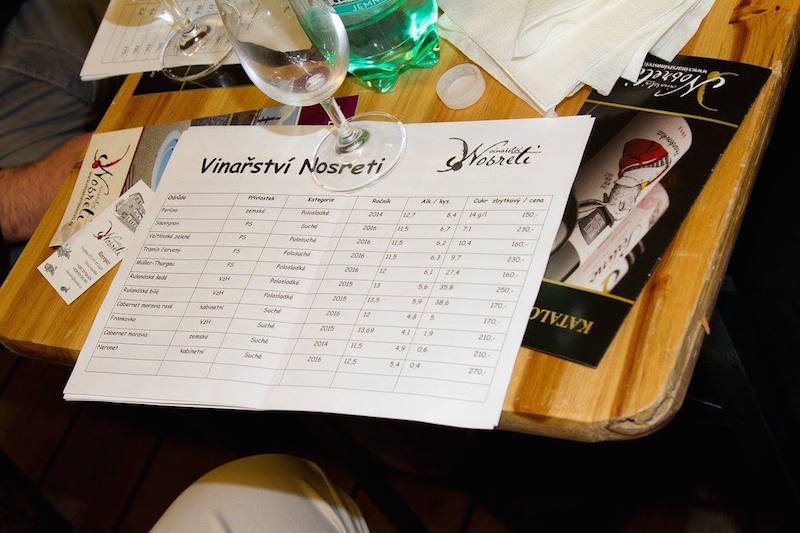 JEMN
Vinařství Nosreti
vinařství
Nosreti
Odrůda Přívlastek Kategorie Ročník Alk / kys. Cukr zbytkový / cena
Perlino zemské Polosladké 2014 12,7 8,4 14 g/l 150,-
Sauvignon PS Suché 2016 11,5 6,7 7,1 230,-
Veltlínské zelené PS Polosuché 2016 11,5 6,2 10,4 160,-
Tramín červený PS Polosuché 2016 11,5 6,3 9,7 230,-
Müller-Thurgau PS Polosladké 2016 12 6,1 27,4 160,-
Rulandské šedé VzH Polosladké 2015 13 5,6 35,8 250,-
Rulandské bílé VzH Polosladké 2015 13,5 5,9 38,6 170,-
Cabernet moravia rosé kabinetní Suché 2016 12 4,8 5 170,-
Frankovka VzH Suché 2015 13,69 4,1 1,9 210,-
Cabernet moravia zemské Suché 2014 11,5 4,9 0,6 210,-
Neronet kabinetní Suché 2016 12,5 5,4 0,4 270,-
Nosreti
Nosreti
Nosreti
KATALO